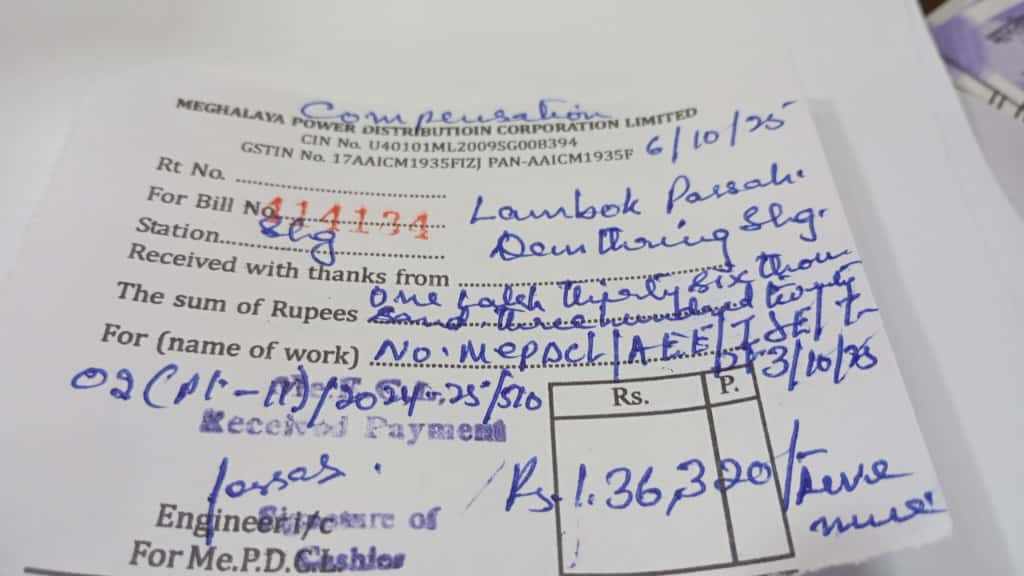 Compensation
MEGHALAYA POWER DISTRIBUTIOIN CORPORATION LIMITED
CIN No. U40101ML2009SG008394
GSTIN No. 17AAICM1935FIZJ PAN-AAICM1935F 6/10/25
Rt No. ............
For Bill No. 414134 Lambok Passah.
Station...... Shg Demthring Shg.
Received with thanks from ............
The sum of Rupees One lakh thirty six thou
sand three hundred twenty
For (name of work) No. MePDCL/AEE/ISE/T-
02 (Pt-II)/2024-25/510 Dt. 3/10/25
Rs. P.
Received Payment
Rs. 1,36,320/
Passah.
Engineer I/c
Signature of
For Me.P.D.C.L.
Cashier